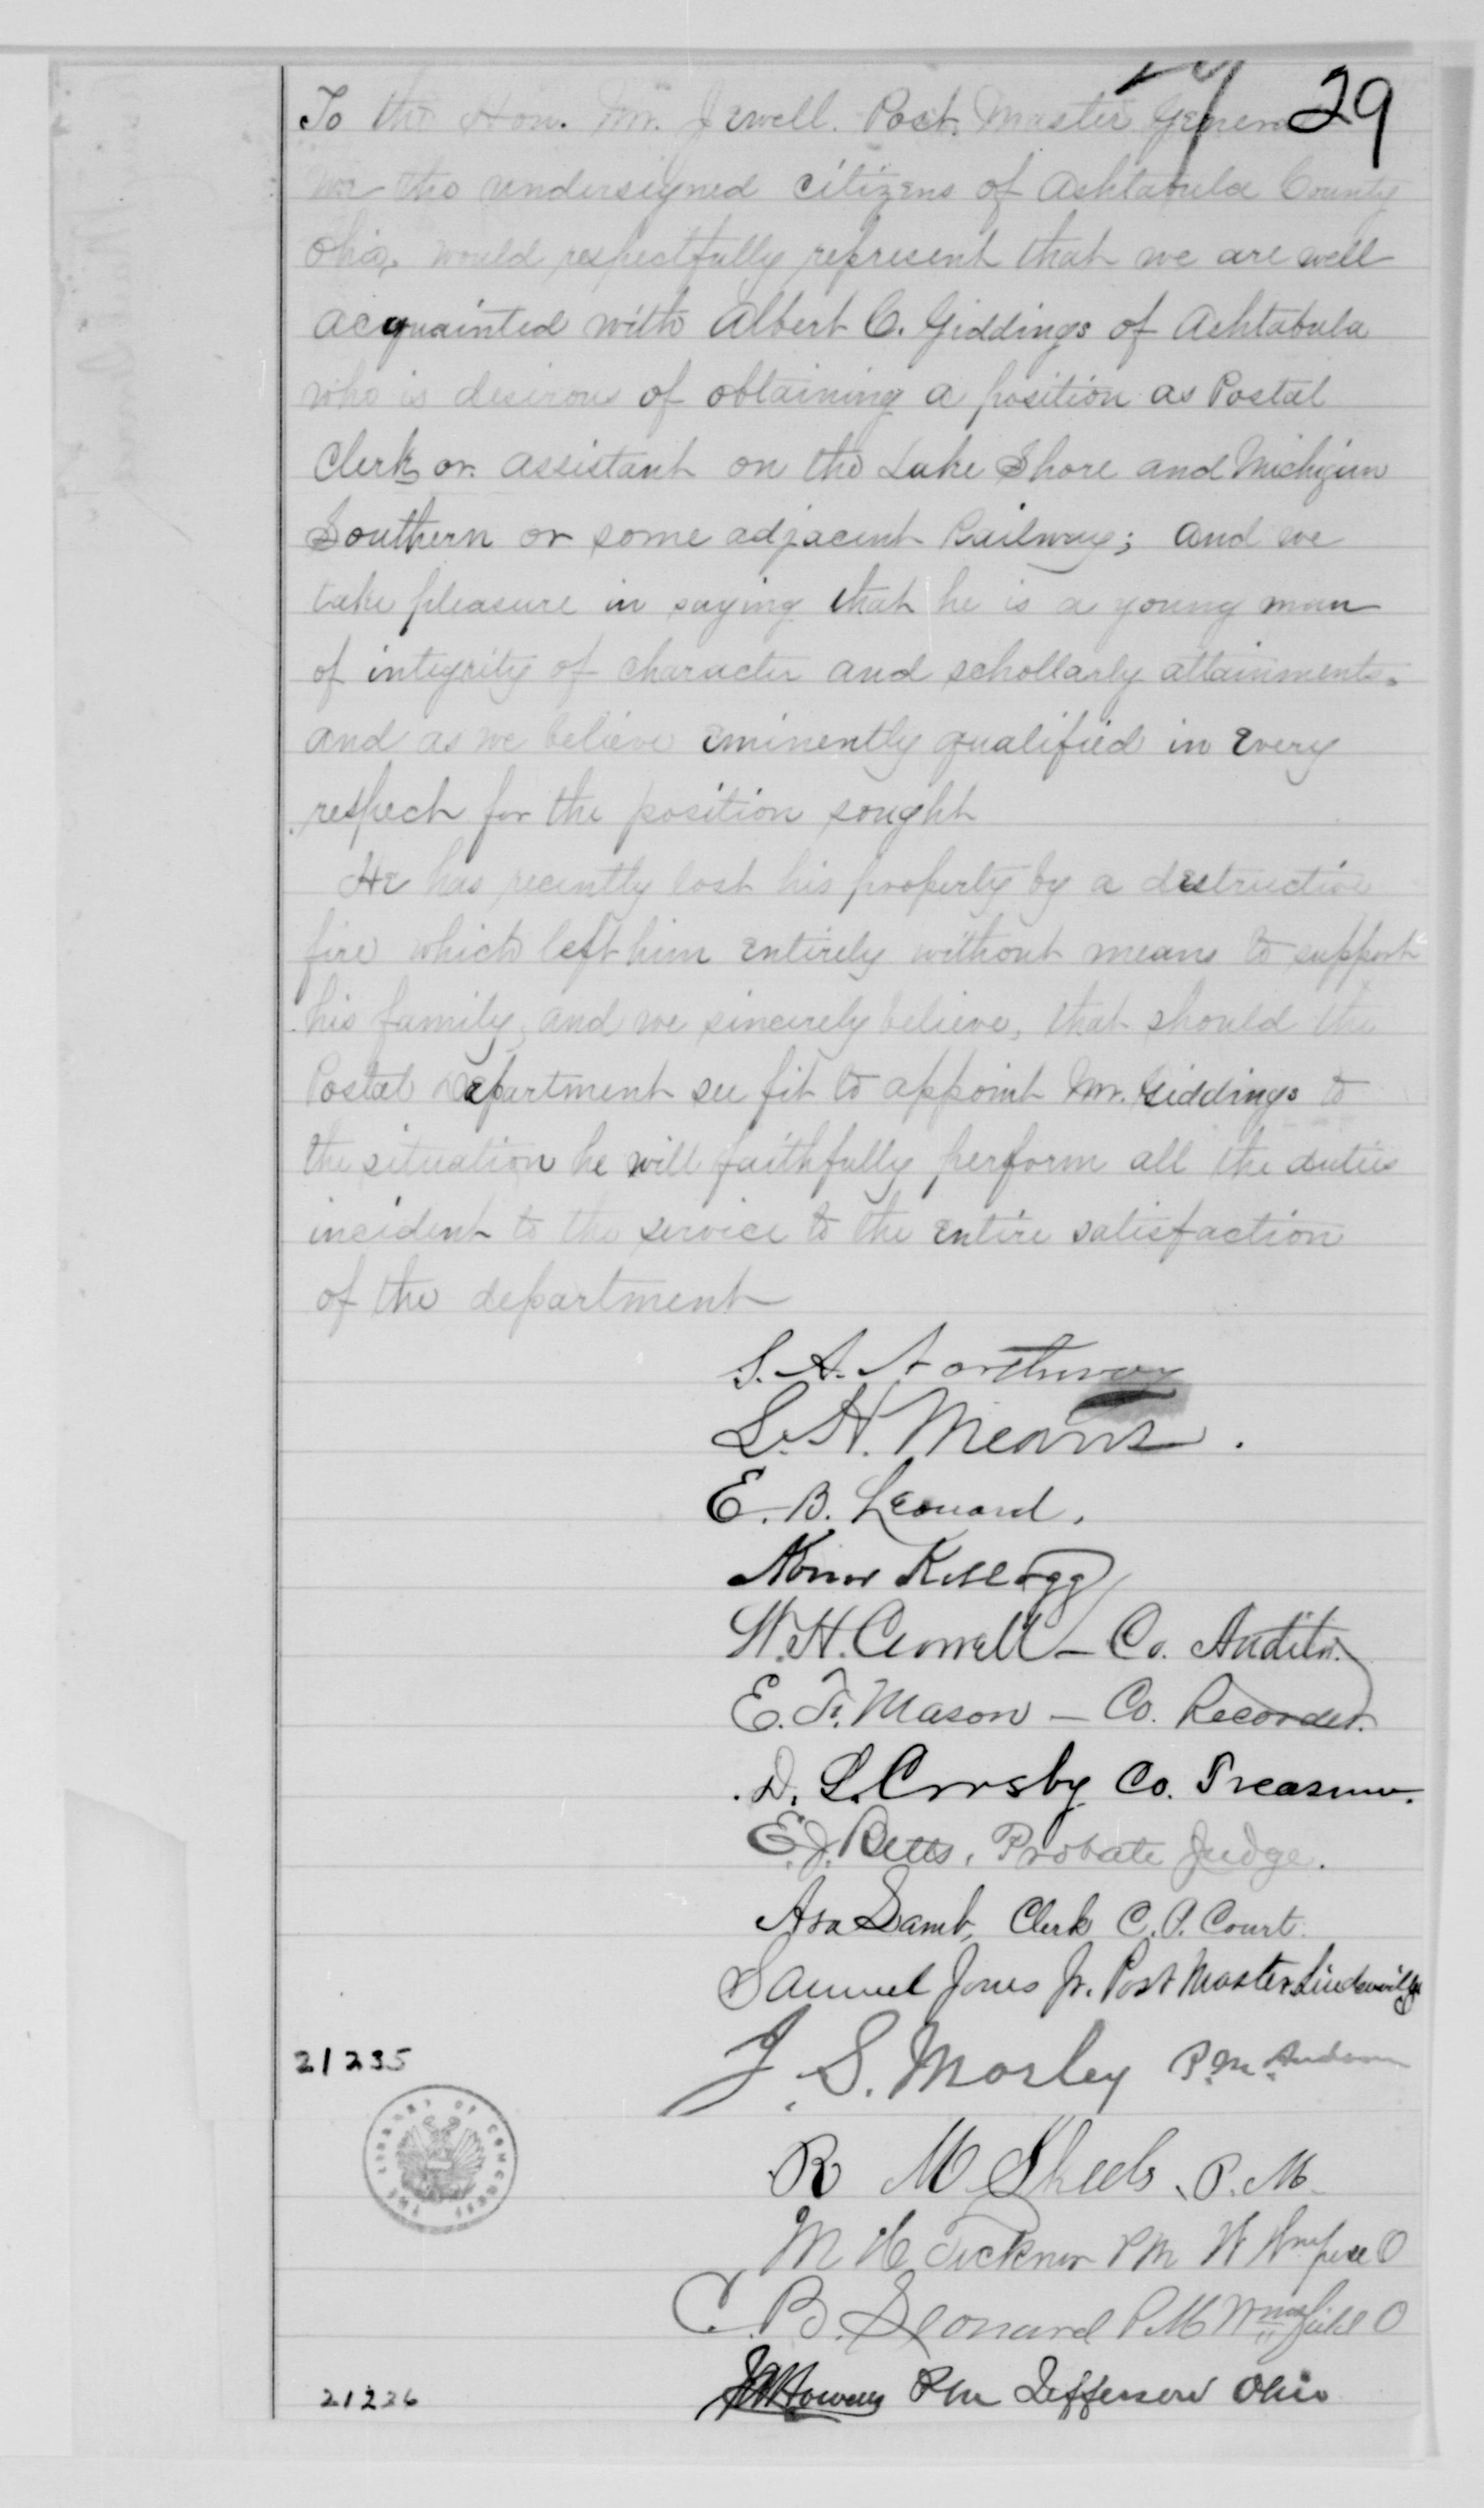 29
To the Hon. Mr. Jewell. Post Master General
We the undersigned citizens of Ashtabula County
Ohio, would respectfully represent that we are well
acquainted with Albert C. Giddings of Ashtabula
who is desirous of obtaining a position as Postal
Clerk or assistant on the Lake Shore and Michigan
Southern or some adjacent Railway; and we
take pleasure in saying that he is a young man
of integrity of character and schollarly attainments.
and as we believe eminently qualified in every
respect for the position sought
He has recently lost his property by a destructive
fire which left him entirely without means to support
his family, and we sincerely believe, that should the
Postal Department see fit to appoint Mr. Giddings to
the situation he will faithfully perform all the duties
incident to the service to the entire satisfaction
of the department
S. A. Northway
L. H. Means.
E. B. Leonard.
Kellogg
W. H. Crowell - Co. Auditor.
E. F. Mason - Co. Recorder.
D. L. Crosby Co. Treasurer.
E. J. Betts, Probate Judge.
Asa Lamb, Clerk C. P. Court.
Samuel Jones Jr. Post Master Lindenville
J. S. Morley P.M. Andover
21235
THE LIBRARY OF CONGRESS
R M P. M.
M H Ticknor P M W O
C. B. Leonard P M O
Howells P M Jefferson Ohio
21236